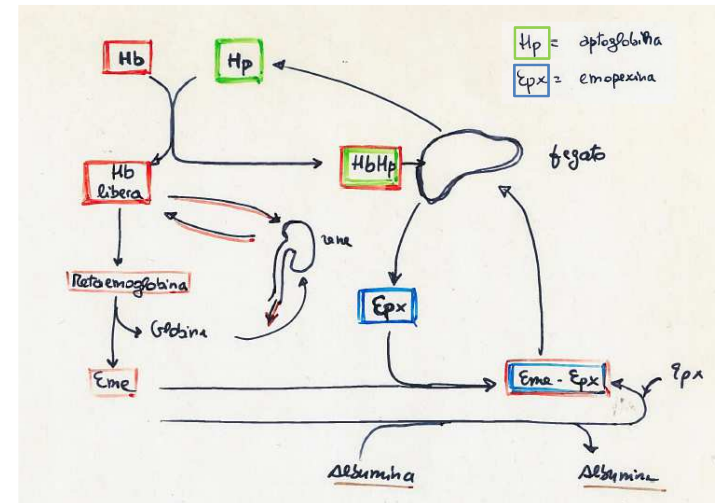 Hp = aptoglobina
Epx = emopexina
Hb
Hp
HbHp
fegato
Hb
libera
rene
Metaemoglobina
Globina
Epx
Eme
Eme - Epx
Epx
Albumina
Albumina